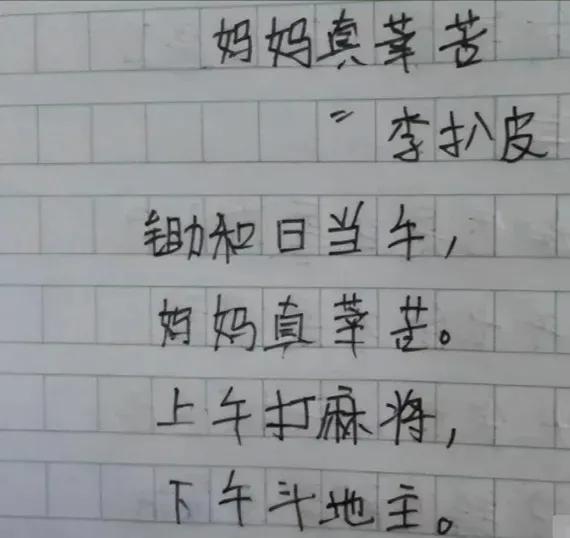 妈妈真莘苦
〃李扒皮
锄和日当午，
妈妈真莘苦。
上午打麻将，
下午斗地主。